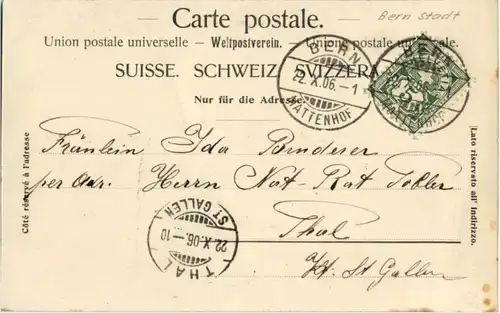 Carte postale.
Bern Stadt
Union postale universelle – Weltpostverein. – Unione postale universale.
SUISSE. SCHWEIZ. SVIZZERA.
Nur für die Adresse.
BERN
22.X.06.–1
MATTENHOF
BERN
MATTENHOF
HELVETIA
5
Côté réservé à l'adresse
Lato riservato all' indirizzo.
Fräulein Ida Benderer
per Adr. Herrn Nat-Rat Tobler
Thal
Kt. St Gallen
ST. GALLEN
22.X.06.–10
THAL